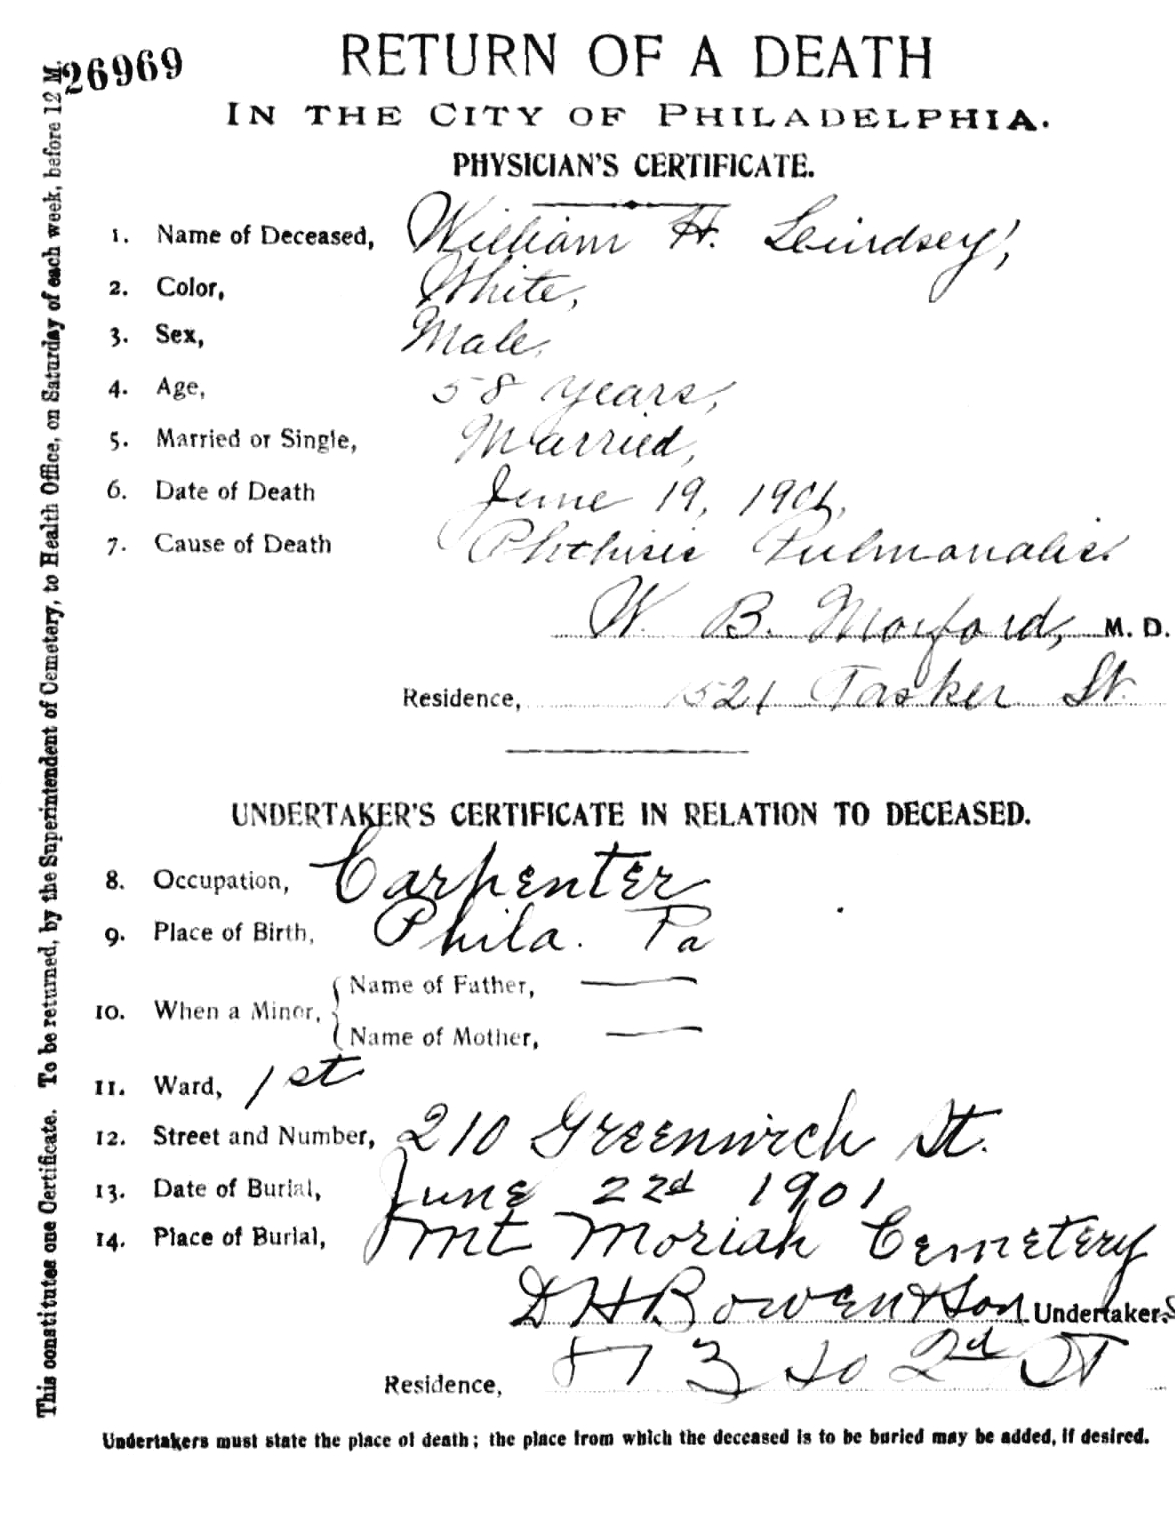 26969
RETURN OF A DEATH
IN THE CITY OF PHILADELPHIA.
PHYSICIAN'S CERTIFICATE.
1. Name of Deceased, William H. Leindsey,
2. Color, White,
3. Sex, Male,
4. Age, 58 years,
5. Married or Single, Married,
6. Date of Death June 19, 1901,
7. Cause of Death Phthisis Pulmonalis.
W. B. Moxford, M. D.
Residence, 1521 Tasker St.
UNDERTAKER'S CERTIFICATE IN RELATION TO DECEASED.
8. Occupation, Carpenter
9. Place of Birth, Phila. Pa
10. When a Minor, { Name of Father, —
Name of Mother, —
11. Ward, 1st
12. Street and Number, 210 Greenwich St.
13. Date of Burial, June 22d 1901
14. Place of Burial, Mt Moriah Cemetery
D H Bowen & Son Undertakers
Residence, 873 So 2d St
Undertakers must state the place of death; the place from which the deceased is to be buried may be added, if desired.
This constitutes one Certificate. To be returned, by the Superintendent of Cemetery, to Health Office, on Saturday of each week, before 12 M.